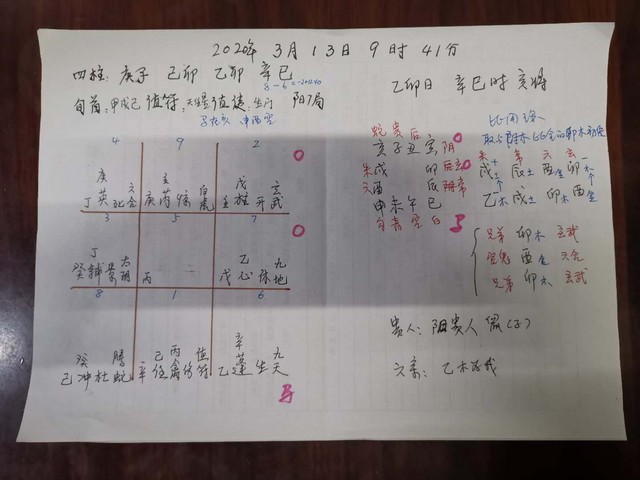 2020年 3月 13日 9时 41分
四柱: 庚子 己卯 乙卯 辛巳
8-6=
旬首: 甲戌己 值符: 天 值使: 生门 阳7局
子 申酉空
4 9 2
庚 六
丁英死合
壬 白
庚丙 虎
戊 玄
壬 开武
3 5 7
丁 太
癸辅景阴
丙
乙 九
戊心休地
8 1 6
癸 螣
己冲杜蛇
己丙 值
辛任禽伤符
辛 九
乙蓬生天
马
乙卯日 辛巳时 亥将
比用法
蛇贵后
亥子丑寅阴
朱戌 卯
六酉 辰 常
申未午巳
勾青空白
朱土 常 六 玄
戌土 辰土 酉金 卯木
乙木 戌土 卯木 酉金
兄弟 卯木 玄武
官鬼 酉金 六合
兄弟 卯木 玄武
贵人: 阳贵人 (子)
六亲: 乙木为我